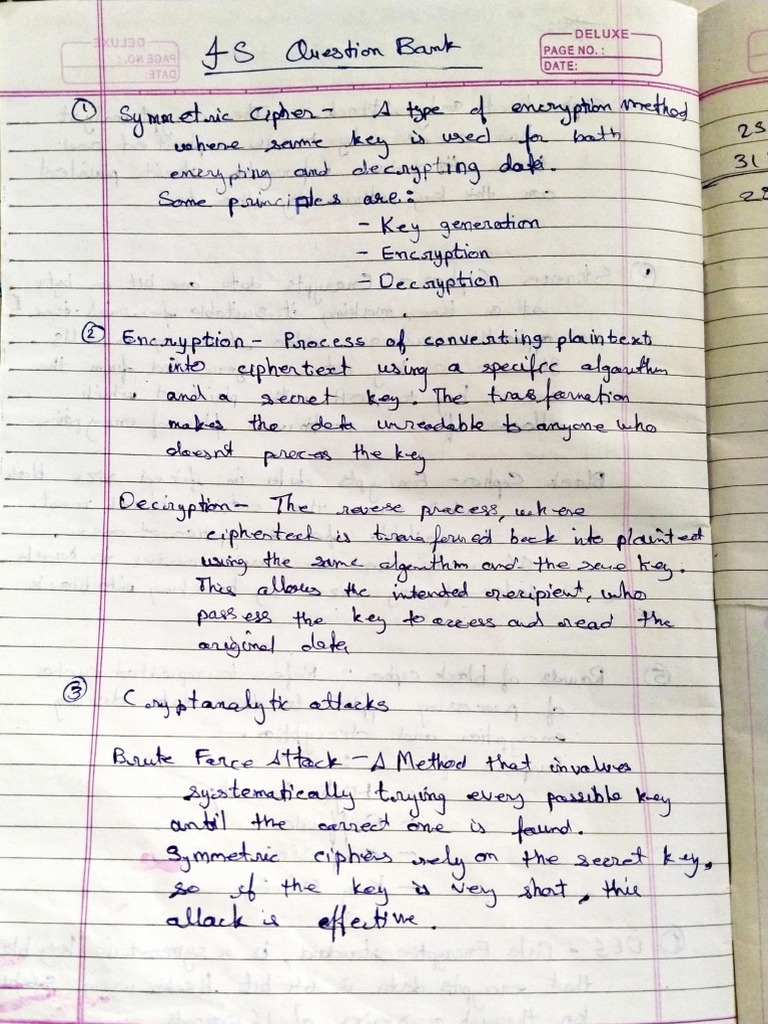 IS Question Bank
DELUXE
PAGE NO.:
DATE:
① Symmetric Cipher - A type of encryption method
where same key is used for both
encrypting and decrypting data.
Some principles are:
- Key generation
- Encryption
- Decryption
② Encryption - Process of converting plaintext
into ciphertext using a specific algorithm
and a secret key. The trasformation
makes the data unreadable to anyone who
doesnt process the key
Deciryption - The reverse process, where
ciphertect is transformed back into plaintext
using the same algorithm and the same key.
This allows the intended recipient, who
possess the key to access and read the
original data
③ Cryptanalytic attacks
Brute Force Attack - A Method that involves
systematically trying every possible key
until the correct one is found.
Symmetric ciphers rely on the secret key,
so if the key is very short, this
attack is effective.
25
31
22